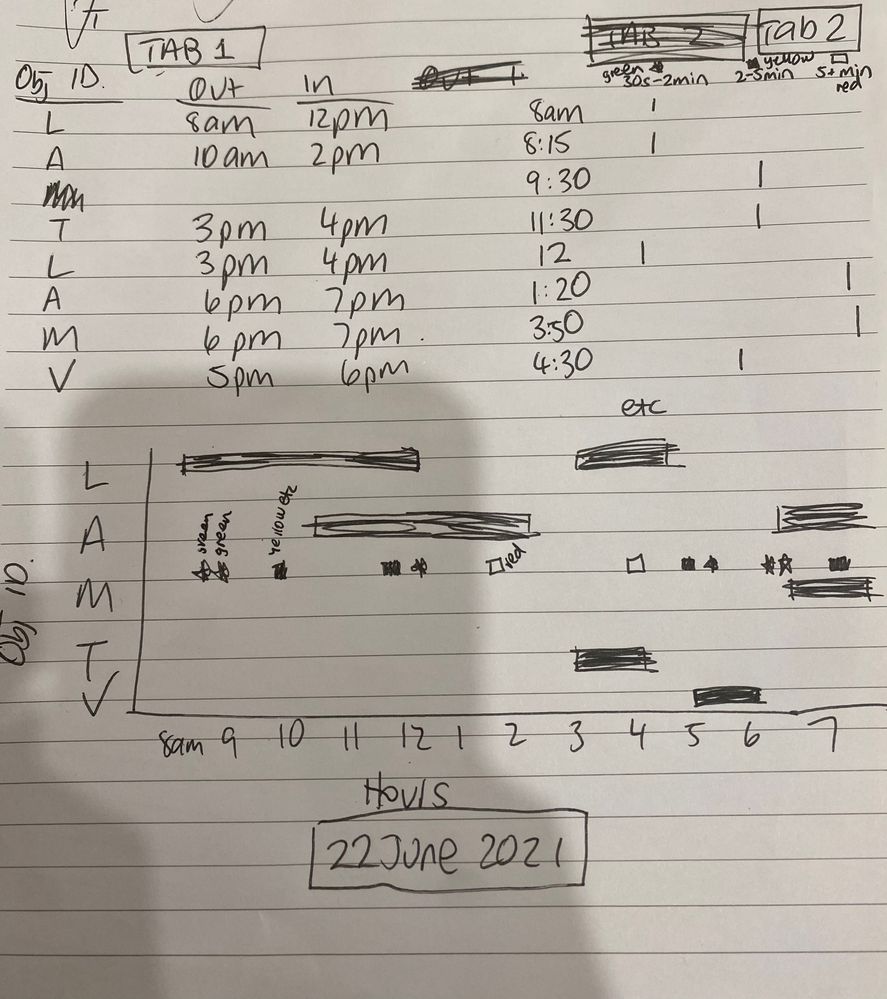 TAB 1
Tab 2
green 30s-2min
yellow 2-5min
5+min red
Obj ID. Out In
L 8am 12pm 8am
A 10am 2pm 8:15
9:30
T 3pm 4pm 11:30
L 3pm 4pm 12
A 6pm 7pm 1:20
M 6pm 7pm. 3:50
V 5pm 6pm 4:30
etc
L
green green yellow etc
A
red
M
Obj ID.
T
V
8am 9 10 11 12 1 2 3 4 5 6 7
Hours
22 June 2021